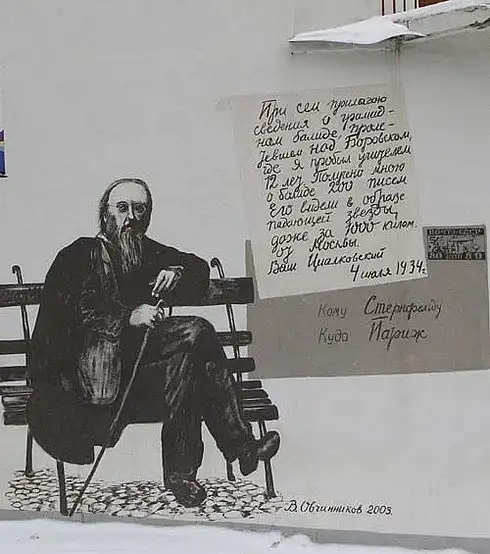 При сем прилагаю
сведения о громад-
ном болиде, проле-
тевшем над Боровском,
где я пробыл учителем
12 лет. Получено мною
о болиде 200 писем
Его видели в образе
падающей звезды,
даже за 1000 килом.
от Москвы.
Ваш Циалковский
4 июля 1934г.
Кому Стернфельду
Куда Париж
В. Овчинников 2003.